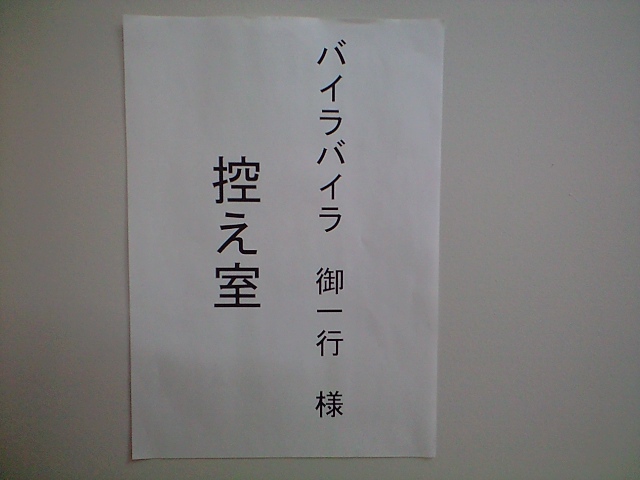 バイラバイラ 御一行 様
控え室